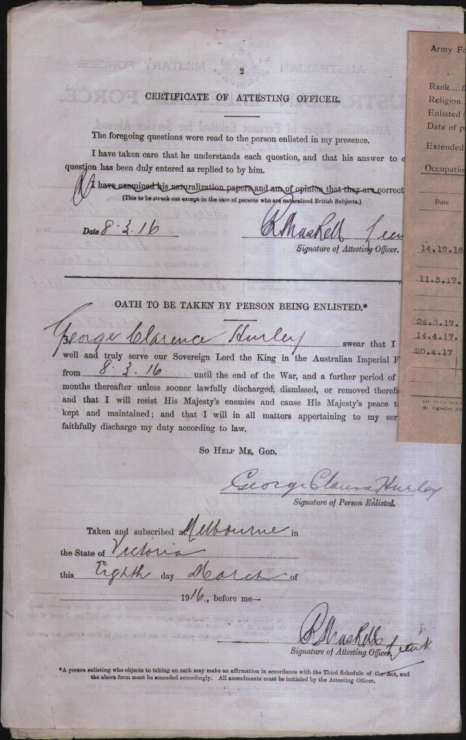 2
CERTIFICATE OF ATTESTING OFFICER.
The foregoing questions were read to the person enlisted in my presence.
I have taken care that he understands each question, and that his answer to e
question has been duly entered as replied to by him.
I have examined his naturalization papers and am of opinion that they are correct
(This to be struck out except in the case of persons who are naturalized British Subjects.)
Date 8.3.16
Maskell Lieut
Signature of Attesting Officer.
OATH TO BE TAKEN BY PERSON BEING ENLISTED.*
I, George Clarence Hurley swear that I
well and truly serve our Sovereign Lord the King in the Australian Imperial F
from 8.3.16 until the end of the War, and a further period of
months thereafter unless sooner lawfully discharged, dismissed, or removed therefr
and that I will resist His Majesty's enemies and cause His Majesty's peace t
kept and maintained; and that I will in all matters appertaining to my ser
faithfully discharge my duty according to law.
SO HELP ME, GOD.
George Clarence Hurley
Signature of Person Enlisted.
Taken and subscribed at Melbourne in
the State of Victoria
this Eighth day March of
1916, before me—
Maskell Lieut
Signature of Attesting Officer.
*A person enlisting who objects to taking an oath may make an affirmation in accordance with the Third Schedule of the Act, and
the above form must be amended accordingly. All amendments must be initialed by the Attesting Officer.
Army Fo
Rank
Religion
Enlisted
Date of p
Extended
Occupatio
Date
14.12.16
11.3.17.
24.3.17.
14.4.17.
20.4.17